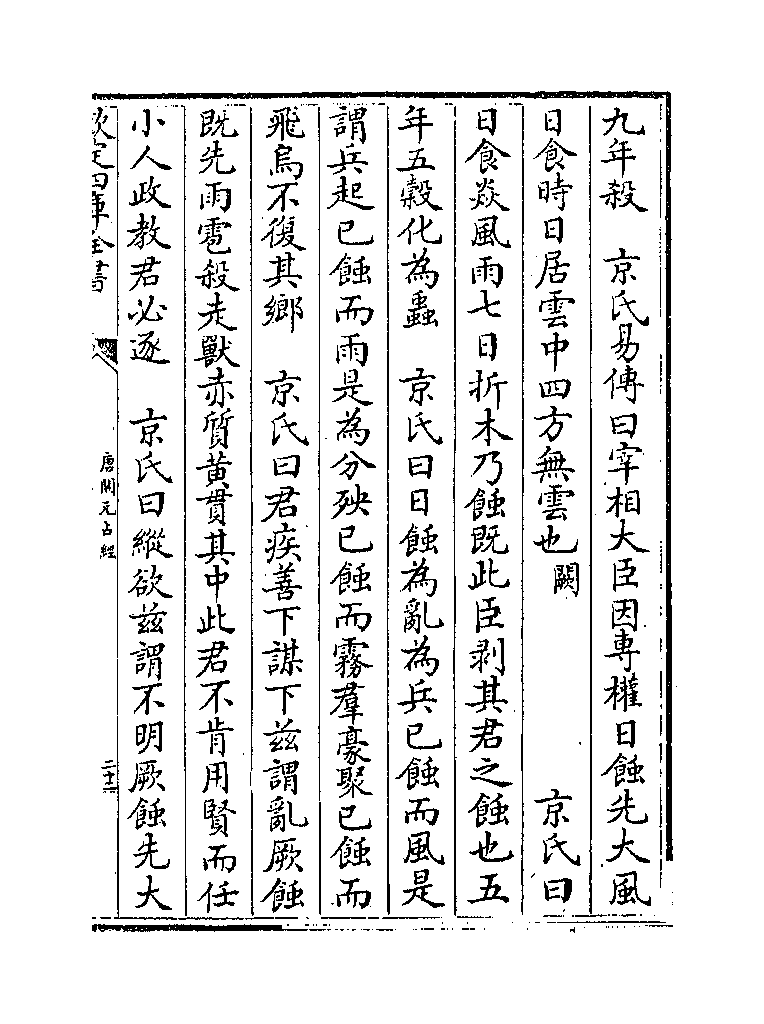 九年殺　京氏易傳曰宰相大臣因專權日蝕先大風
日食時日居雲中四方無雲也闕　京氏曰
日食焱風雨七日折木乃蝕既此臣剥其君之蝕也五
年五榖化為蟲　京氏曰日蝕為亂為兵已蝕而風是
謂兵起已蝕而雨是為分殃已蝕而霧羣豪聚已蝕而
飛鳥不復其鄉　京氏曰君疾善下謀下兹謂亂厥蝕
既先雨雹殺走獸赤質黄貫其中此君不肯用賢而任
小人政教君必逐　京氏曰縱欲兹謂不明厥蝕先大
欽定四庫全書
唐開元占經
二十二